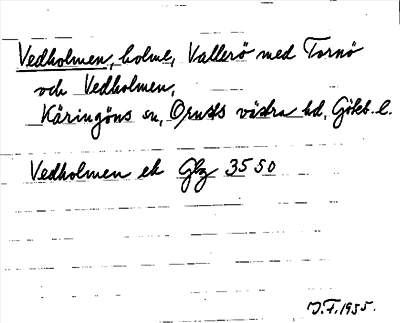 Vedholmen, holme, Vallerö med Tornö
och Vedholmen,
Käringöns sn, Orusts västra hd, Göteb. l.
Vedholmen ek Glz 3550
J.F. 1955.